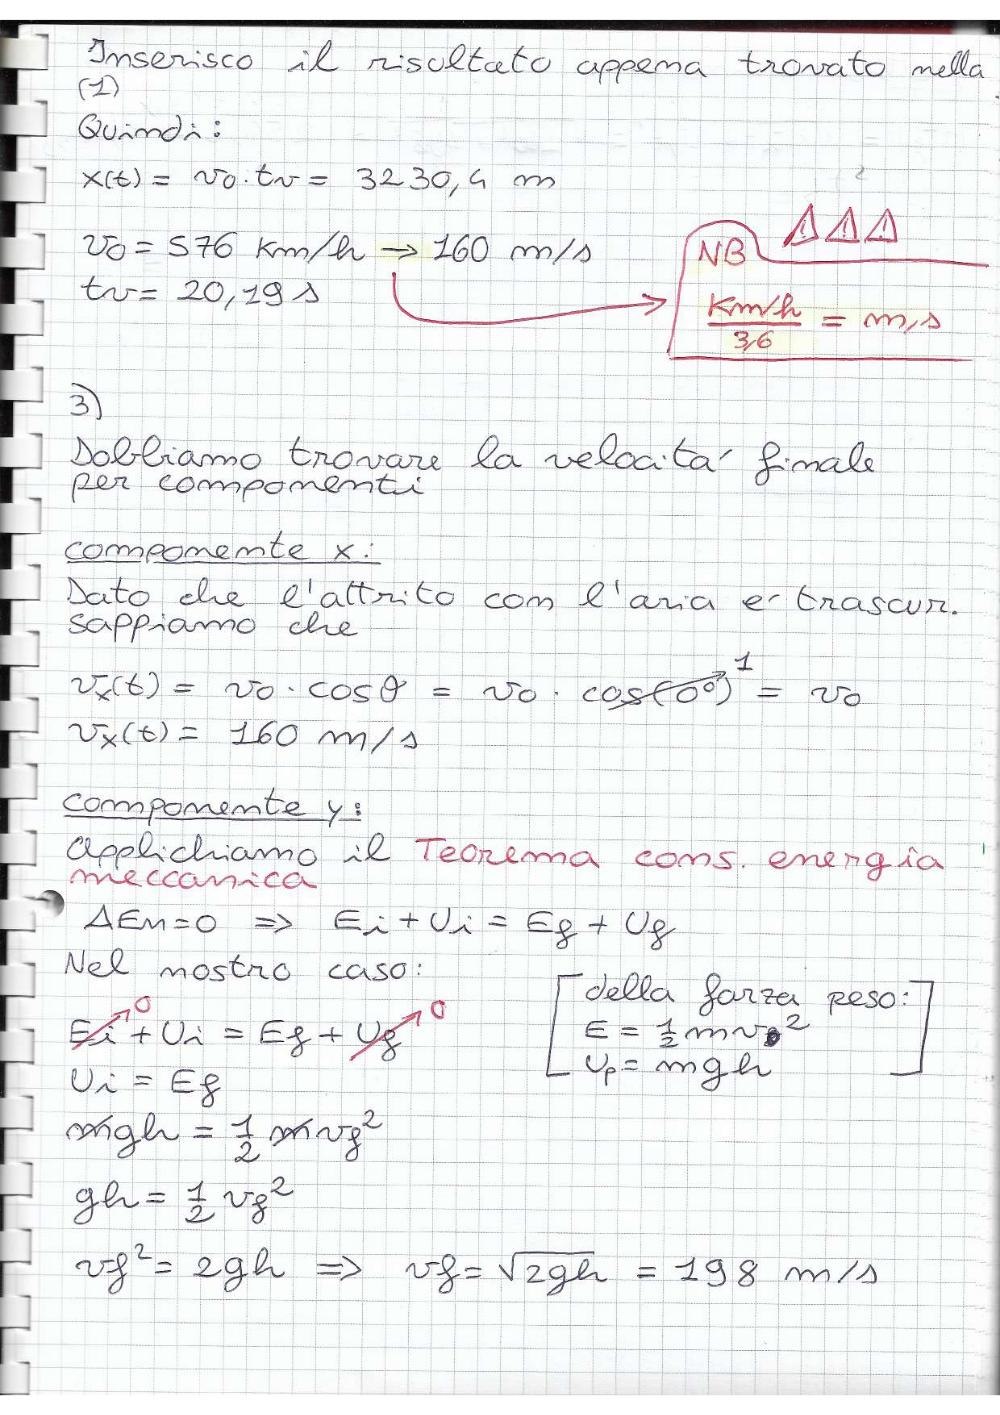 Inserisco il risultato appena trovato nella
(1)
Quindi:
x(t) = v₀·tv = 3230,4 m
v₀ = 576 Km/h → 160 m/s
tv = 20,19 s
NB
Km/h / 3,6 = m/s
3)
Dobbiamo trovare la velocità finale
per componenti
componente x:
Dato che l'attrito con l'aria è trascur.
sappiamo che
vx(t) = v₀ · cosθ = v₀ · cos(0°) 1 = v₀
vx(t) = 160 m/s
componente y:
Applichiamo il Teorema cons. energia
meccanica
ΔEm=0 => Ei + Ui = Ef + Uf
Nel nostro caso:
Ei 0 + Ui = Ef + Uf 0
Ui = Ef
mgh = 1/2 mvf²
gh = 1/2 vf²
vf² = 2gh => vf = √2gh = 198 m/s
della forza peso:
E = 1/2 mv²
Up = mgh